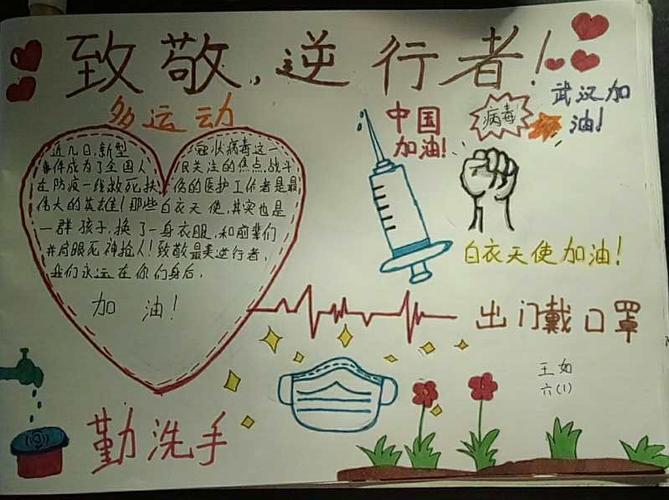 致敬，逆行者！
多运动
中国
加油！
病毒
武汉加
油！
近几日，新型冠状病毒这一
事件成为了全国人民关注的焦点。战斗
在防疫一线救死扶伤的医护工作者是最
伟大的英雄！那些白衣天使，其实也是
一群孩子，换了一身衣服，和前辈们
并肩跟死神抢人！致敬最美逆行者，
我们永远在你们身后，
加油！
白衣天使加油！
出门戴口罩
王如
六(1)
勤洗手